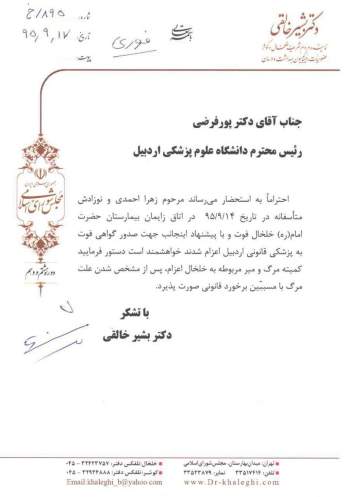 دکتر بشیر خالقی
شماره: ۸۹۵/خ
تاریخ: ۹۵,۹,۱۷
پیوست:
فوری
جناب آقای دکتر پورفرضی
رئیس محترم دانشگاه علوم پزشکی اردبیل
احتراماً به استحضار می‌رساند مرحوم زهرا احمدی و نوزادش
متأسفانه در تاریخ ۹۵/۹/۱۴ در اتاق زایمان بیمارستان حضرت
امام(ره) خلخال فوت و با پیشنهاد اینجانب جهت صدور گواهی فوت
به پزشکی قانونی اردبیل اعزام شدند خواهشمند است دستور فرمایید
کمیته مرگ و میر مربوطه به خلخال اعزام، پس از مشخص شدن علت
مرگ با مسببّین برخورد قانونی صورت پذیرد.
مجلس شورای اسلامی
دوره نهم و دهم
با تشکر
دکتر بشیر خالقی
تهران، میدان بهارستان، مجلس شورای اسلامی
تلفن: ۳۳۵۱۷۶۱۴ نمابر: ۳۳۵۲۳۸۷۹
www.Dr-khaleghi.com
خلخال: تلفکس دفتر: ۳۲۴۲۳۷۵۷ - ۰۴۵
کوثر: تلفکس دفتر: ۳۲۹۳۴۸۸۸ - ۰۴۵
Email:khaleghi_b@yahoo.com